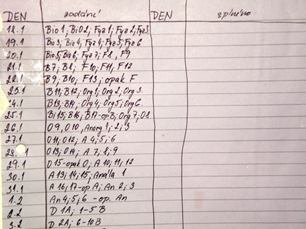 DEN zadání DEN splněno
18.1 Bio1, BiO2, Fyz1, Fyz2, Fyz3
19.1 Bio3, Bio4, Fyz4, Fyz5, Fyz6
20.1 Bio5, Bio6, Fyz7, F8, F9
21.1 B7, B8, F10, F11, F12
22.1 B9, B10, F13, opak F
23.1 B11, B12, Org1, Org2, Org3
24.1 B13, B14, Org4, Org5, Org6
25.1 B15, B16, B17-opB, Org7, O8
26.1 O9, O10, Anorg1, 2, 3
27.1 O11, O12, A4, 5, 6
28.1 O13, O14, A7, 8, 9
29.1 O15-opak O, A10, 11, 12
30.1 A13, 14, 15, Anála 1
31.1 A16, 17-op A, An. 2, 3
1.2 An 4, 5, 6 - op. An
2.2 D 1A, 1-5 B
3.2 D 2A, 6-10B